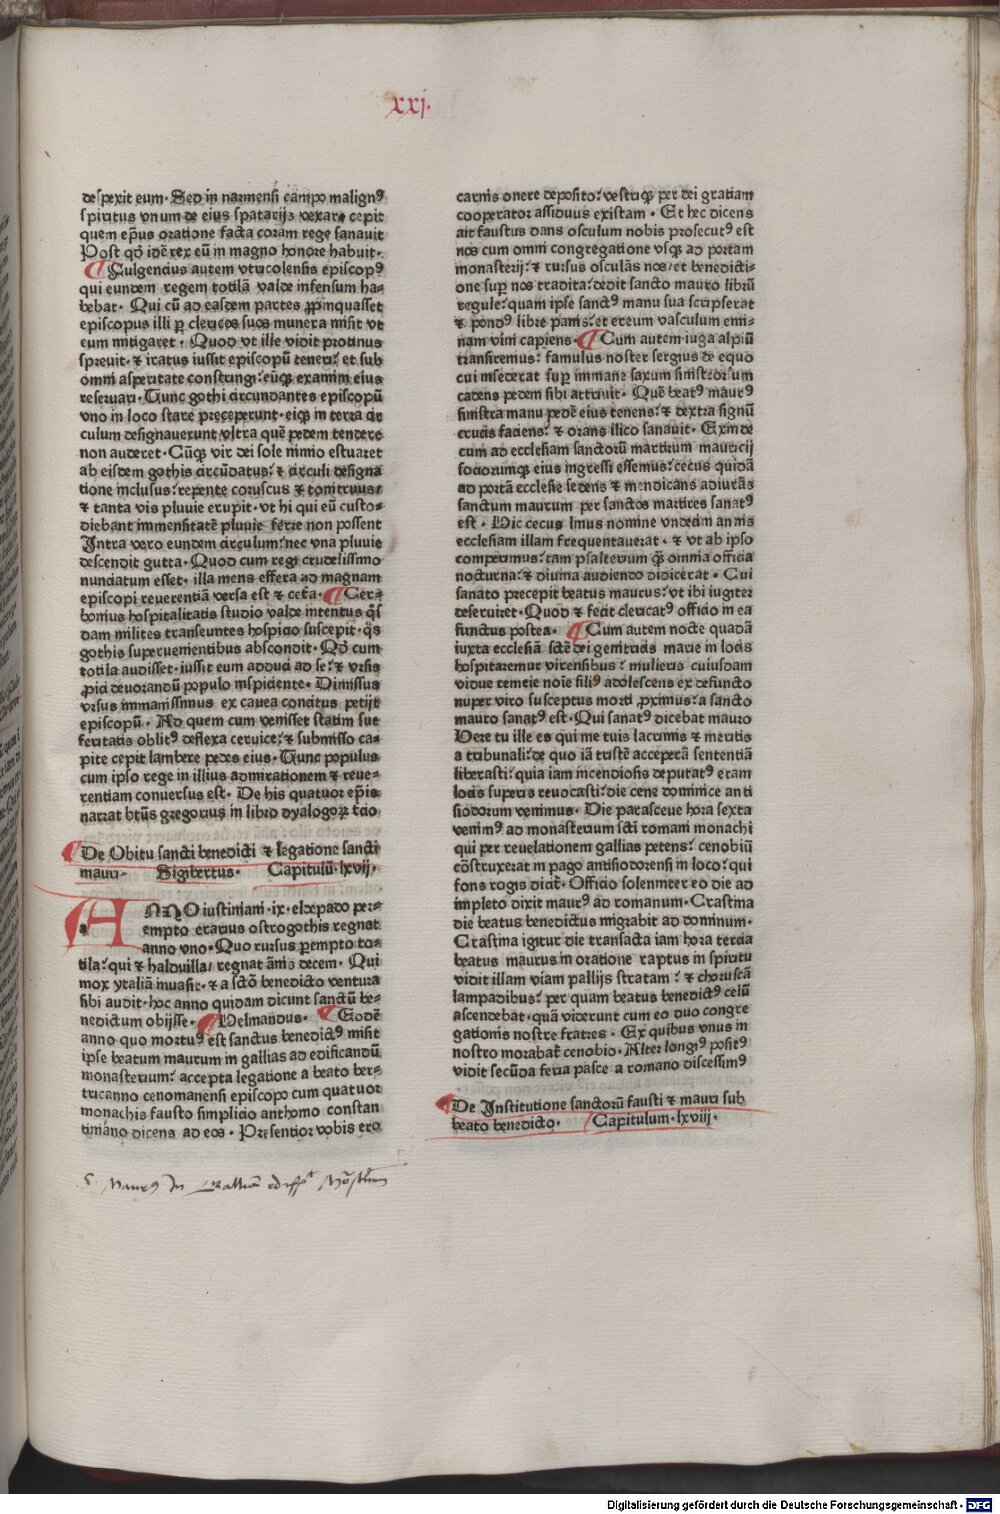 xxj.
despexit eum. Sed in narniensi campo malignꝰ
spiritus vnum de eius spatarijs vexare cepit
quem ep̄us oratione facta coram rege sanauit
Post qd̓ idē rex eū in magno honore habuit.
¶ Fulgencius autem vtricolensis episcopꝰ
qui eundem regem totilā valde infensum ha-
bebat. Qui cū ad easdem partes ꝓpinquasset
episcopus illi ꝑ clericos suos munera misit vt
eum mitigaret. Quod vt ille vidit protinus
spreuit. ⁊ iratus iussit episcopū teneri: et sub
omni asperitate constringi: eūqꝫ examini eius
reseruari. Tunc gothi circundantes episcopū
vno in loco stare preceperunt. eiqꝫ in terra cir
culum designauerunt vltra quē pedem tendere
non auderet. Cūqꝫ vir dei sole nimio estuaret
ab eisdem gothis circūdatus: ⁊ circuli designa
tione inclusus: repente coruscus ⁊ tonitruus:
⁊ tanta vis pluuie erupit. vt hi qui eū custo-
diebant immensitatē pluuie ferre non possent
Intra vero eundem circulum: nec vna pluuie
descendit gutta. Quod cum regi crudelissimo
nunciatum esset. illa mens effera ad magnam
episcopi reuerentiā versa est ⁊ cetā. ¶ Cer-
bonius hospitalitatis studio valde intentus qͥs
dam milites transeuntes hospicio suscepit. qͦs
gothis superuenientibus abscondit. Qd̓ cum
totila audisset. iussit eum adduci ad se: ⁊ vrsis
ꝓici deuorandū populo inspiciente. Dimissus
vrsus immanissimus ex cauea concitus petijt
episcopū. Ad quem cum venisset statim sue
feritatis oblitꝰ deflexa ceruice: ⁊ submisso ca-
pite cepit lambere pedes eius. Tunc populus
cum ipso rege in illius admirationem ⁊ reue-
rentiam conuersus est. De his quatuor ep̄is
narrat btūs gregorius in libro dyalogoꝝ t̓cio
¶ De Obitu sancti benedicti ⁊ legatione sancti
mauri. Sigibertus. Capitulū. lxvij.
ANNO iustiniani. ix. eldepado per-
empto erarius ostrogothis regnat
anno vno. Quo rursus ꝑempto to-
tila: qui ⁊ balduilla: regnat ānis decem. Qui
mox ytaliā inuasit. ⁊ a sctō benedicto ventura
sibi audit. hoc anno quidam dicunt sanctū be-
nedictum obijsse. ¶ Helmandus. ¶ Eodē
anno quo mortuꝰ est sanctus benedictꝰ misit
ipse beatum maurum in gallias ad edificandū
monasterium: accepta legatione a beato ber-
tricanno cenomanensi episcopo cum quatuor
monachis fausto simplicio anthonio constan
tiniano dicens ad eos. Presentior vobis ero
S. Maurꝰ in Galliam
carnis onere deposito: vestriqꝫ per dei gratiam
cooperator assiduus existam. Et hec dicens
ait faustus dans osculum nobis prosecutꝰ est
nos cum omni congregatione vsqꝫ ad portam
monasterij: ⁊ rursus osculās nos/et benedicti-
one suꝑ nos tradita: dedit sancto mauro librū
regule: quam ipse sanctꝰ manu sua scripserat
⁊ pondꝰ libre panis: et ereum vasculum emi-
nam vini capiens. ¶ Cum autem iuga alpiū
transiremus: famulus noster sergius de equo
cui insederat suꝑ immane saxum sinistrorsum
cadens pedem sibi attriuit. Quē beatꝰ maurꝰ
sinistra manu pedē eius tenens: ⁊ dextra signū
crucis faciens: ⁊ orans ilico sanauit. Exinde
cum ad ecclesiam sanctorū martirum mauricij
sociorumqꝫ eius ingressi essemus: cecus quidā
ad portā ecclesie sedens ⁊ mendicans adiurās
sanctum maurum per sanctos martires sanatꝰ
est. Hic cecus linus nomine vndecim annis
ecclesiam illam frequentauerat. ⁊ vt ab ipso
comperimus: tam psalterium qꝫ omnia officia
nocturna: ⁊ diurna audiendo didicerat. Cui
sanato precepit beatus maurus: vt ibi iugiter
deseruiret. Quod ⁊ fecit clericatꝰ officio in ea
functus postea. ¶ Cum autem nocte quadā
iuxta ecclesiā sctē dei genitricis marie in locis
hospitaremur virensibus: mulieris cuiusdam
vidue remeie noīe filiꝰ adolescens ex defuncto
nuper viro susceptus morti ꝓximus: a sancto
mauro sanatꝰ est. Qui sanatꝰ dicebat mauro
Vere tu ille es qui me tuis lacrimis ⁊ meritis
a tribunali: de quo iā tristē acceperā sententiā
liberasti: quia iam incendiosis deputatꝰ eram
locis superis reuocasti: die cene dominice anti
siodorum venimus. Die parasceue hora sexta
venimꝰ ad monasterium scti romani monachi
qui per reuelationem gallias petens: cenobiū
cōstruxerat in pago antisiodorensi in loco: qui
fons rogis dicit̄. Officio solenniter eo die ad
impleto dixit maurꝰ ad romanum. Crastina
die beatus benedictus migrabit ad dominum.
Crastina igitur die transacta iam hora tercia
beatus maurus in oratione raptus in spiritu
vidit illam viam pallijs stratam: ⁊ choruscā
lampadibus: per quam beatus benedictꝰ celū
ascendebat. quā viderunt cum eo duo congre
gationis nostre fratres. Ex quibus vnus in
nostro morabat̄ cenobio. Alter longiꝰ positꝰ
vidit secūda feria pasce a romano discessimꝰ
¶ De Institutione sanctorū fausti ⁊ mauri sub
beato benedicto. Capitulum. lxviij.
Digitalisierung gefördert durch die Deutsche Forschungsgemeinschaft - DFG